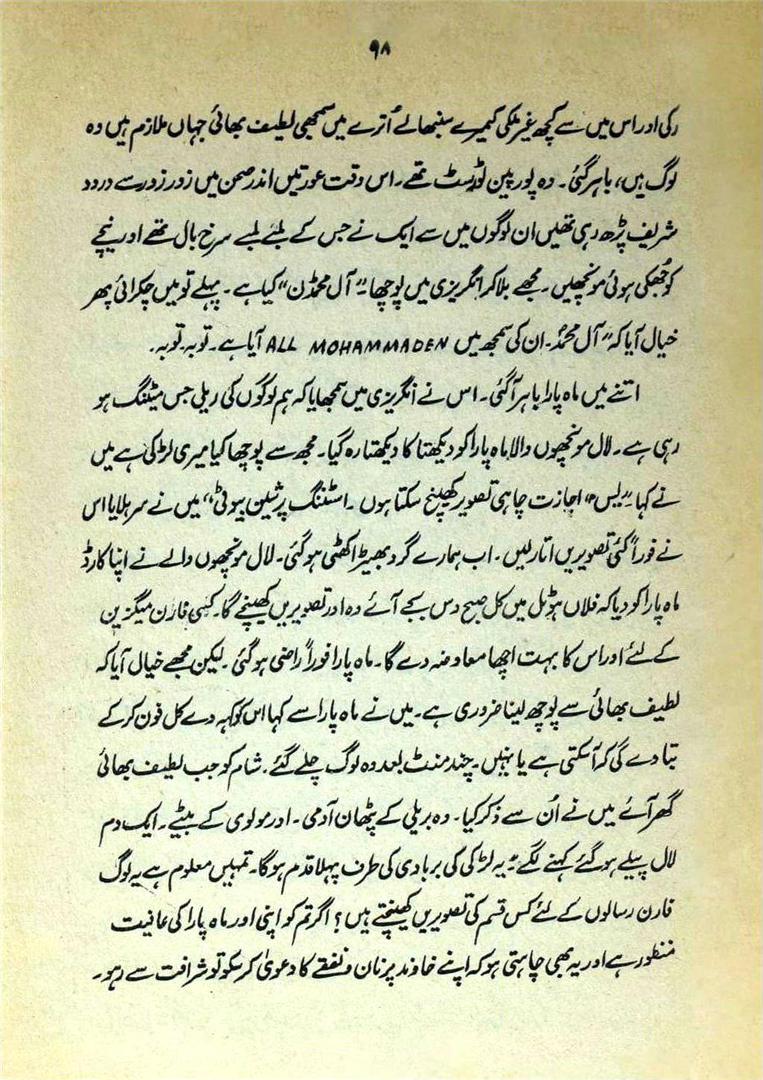 ۹۸
رکی اور اس میں سے کچھ غیر ملکی کیمرے سنبھالے اُترے میں سمجھی لطیف بھائی جہاں ملازم ہیں وہ
لوگ ہیں، باہر گئی۔ وہ یورپین ٹورسٹ تھے۔ اس وقت عورتیں اندر صحن میں زور زور سے درود
شریف پڑھ رہی تھیں ان لوگوں میں سے ایک نے جس کے لمبے لمبے سرخ بال تھے اور نیچے
کو جُھکی ہوئی مونچھیں۔ مجھے بلا کر انگریزی میں پوچھا۔ "آل محمڈن" کیا ہے۔ پہلے تو میں چکرائی پھر
خیال آیا کہ "آل محمدؐ۔ ان کی سمجھ میں ALL MOHAMMADEN آیا ہے۔ توبہ۔ توبہ۔
اتنے میں ماہ پارا باہر آ گئی۔ اس نے انگریزی میں سمجھایا کہ ہم لوگوں کی ریلی جس میٹنگ ہو
رہی ہے۔ لال مونچھوں والا ماہ پارا کو دیکھتا کا دیکھتا رہ گیا۔ مجھ سے پوچھا کیا میری لڑکی ہے میں
نے کہا "یس" اجازت چاہی تصویر کھینچ سکتا ہوں۔ اسٹننگ پرشین بیوٹی" میں نے سر ہلایا اس
نے فوراً کئی تصویریں اتار لیں۔ اب ہمارے گرد بھیڑ اکٹھی ہو گئی۔ لال مونچھوں والے نے اپنا کارڈ
ماہ پارا کو دیا کہ فلاں ہوٹل میں کل صبح دس بجے آئے وہ اور تصویریں کھینچے گا۔ کسی فارن میگزین
کے لئے اور اس کا بہت اچھا معاوضہ دے گا۔ ماہ پارا فوراً راضی ہو گئی۔ لیکن مجھے خیال آیا کہ
لطیف بھائی سے پوچھ لینا ضروری ہے۔ میں نے ماہ پارا سے کہا اس کو کہہ دے کل فون کر کے
بتا دے گی کہ آ سکتی ہے یا نہیں۔ چند منٹ بعد وہ لوگ چلے گئے۔ شام کو جب لطیف بھائی
گھر آئے میں نے اُن سے ذکر کیا۔ وہ بریلی کے پٹھان آدمی۔ اور مولوی کے بیٹے۔ ایک دم
لال پیلے ہو گئے کہنے لگے۔ "یہ لڑکی کی بربادی کی طرف پہلا قدم ہو گا۔ تمہیں معلوم ہے یہ لوگ
فارن رسالوں کے لئے کس قسم کی تصویریں کھینچتے ہیں؟ اگر تم کو اپنی اور ماہ پارا کی عافیت
منظور ہے اور یہ بھی چاہتی ہو کہ اپنے خاوند پر نان و نفقے کا دعویٰ کر سکو تو شرافت سے رہو۔